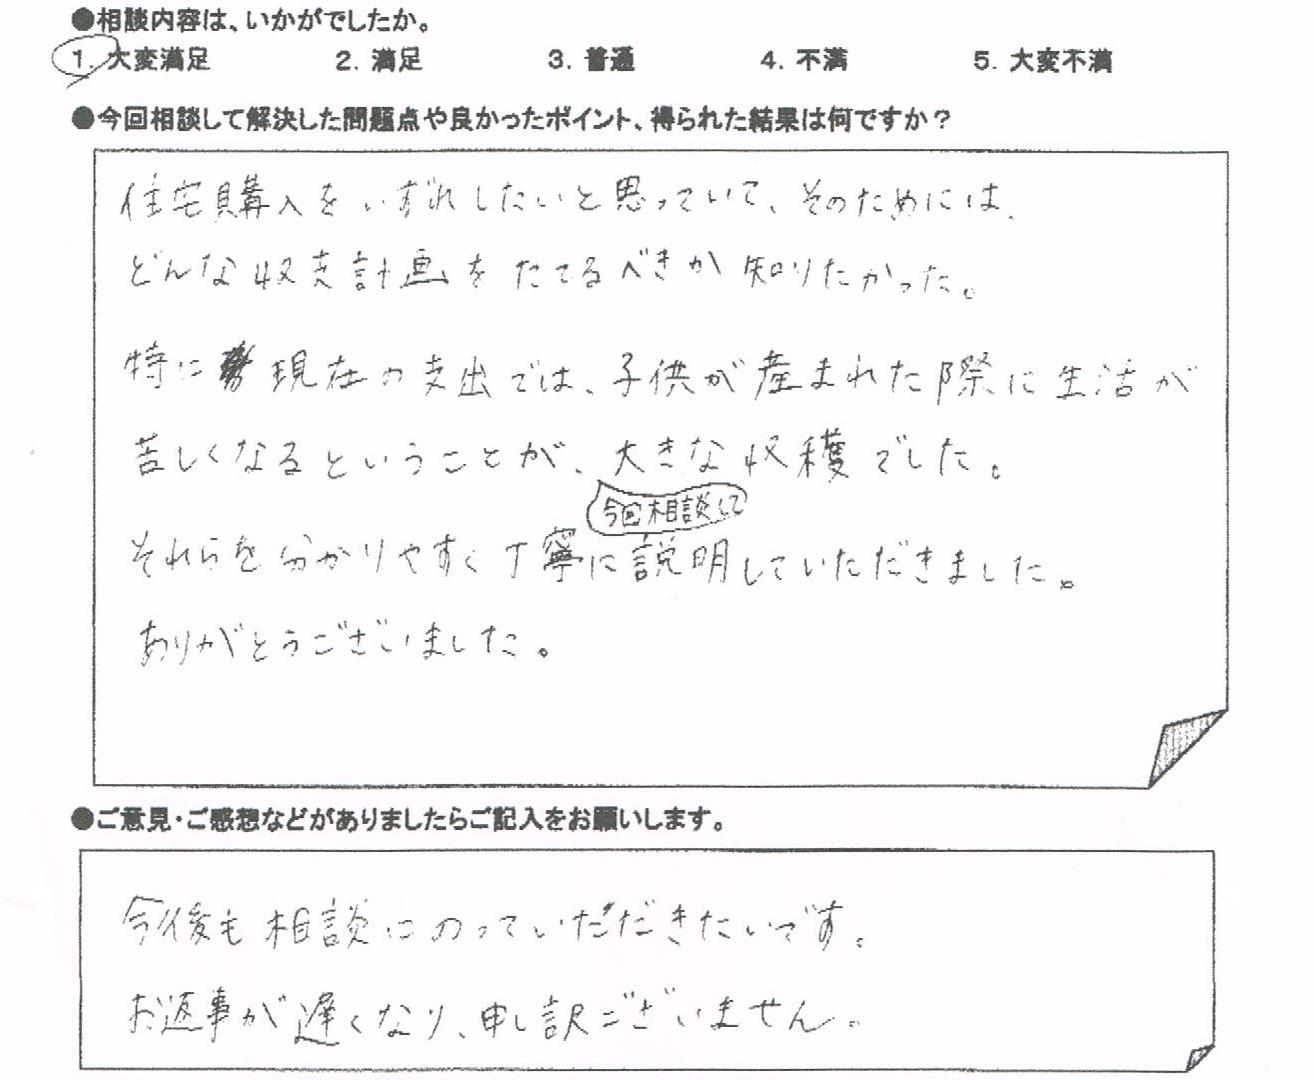 ●相談内容は、いかがでしたか。
1. 大変満足 2. 満足 3. 普通 4. 不満 5. 大変不満
●今回相談して解決した問題点や良かったポイント、得られた結果は何ですか？
住宅購入をいずれしたいと思っていて、そのためには、
どんな収支計画をたてるべきか知りたかった。
特に現在の支出では、子供が産まれた際に生活が
苦しくなるということが、大きな収穫でした。
今回相談して
それらを分かりやすく丁寧に説明していただきました。
ありがとうございました。
●ご意見・ご感想などがありましたらご記入をお願いします。
今後も相談にのっていただきたいです。
お返事が遅くなり、申し訳ございません。